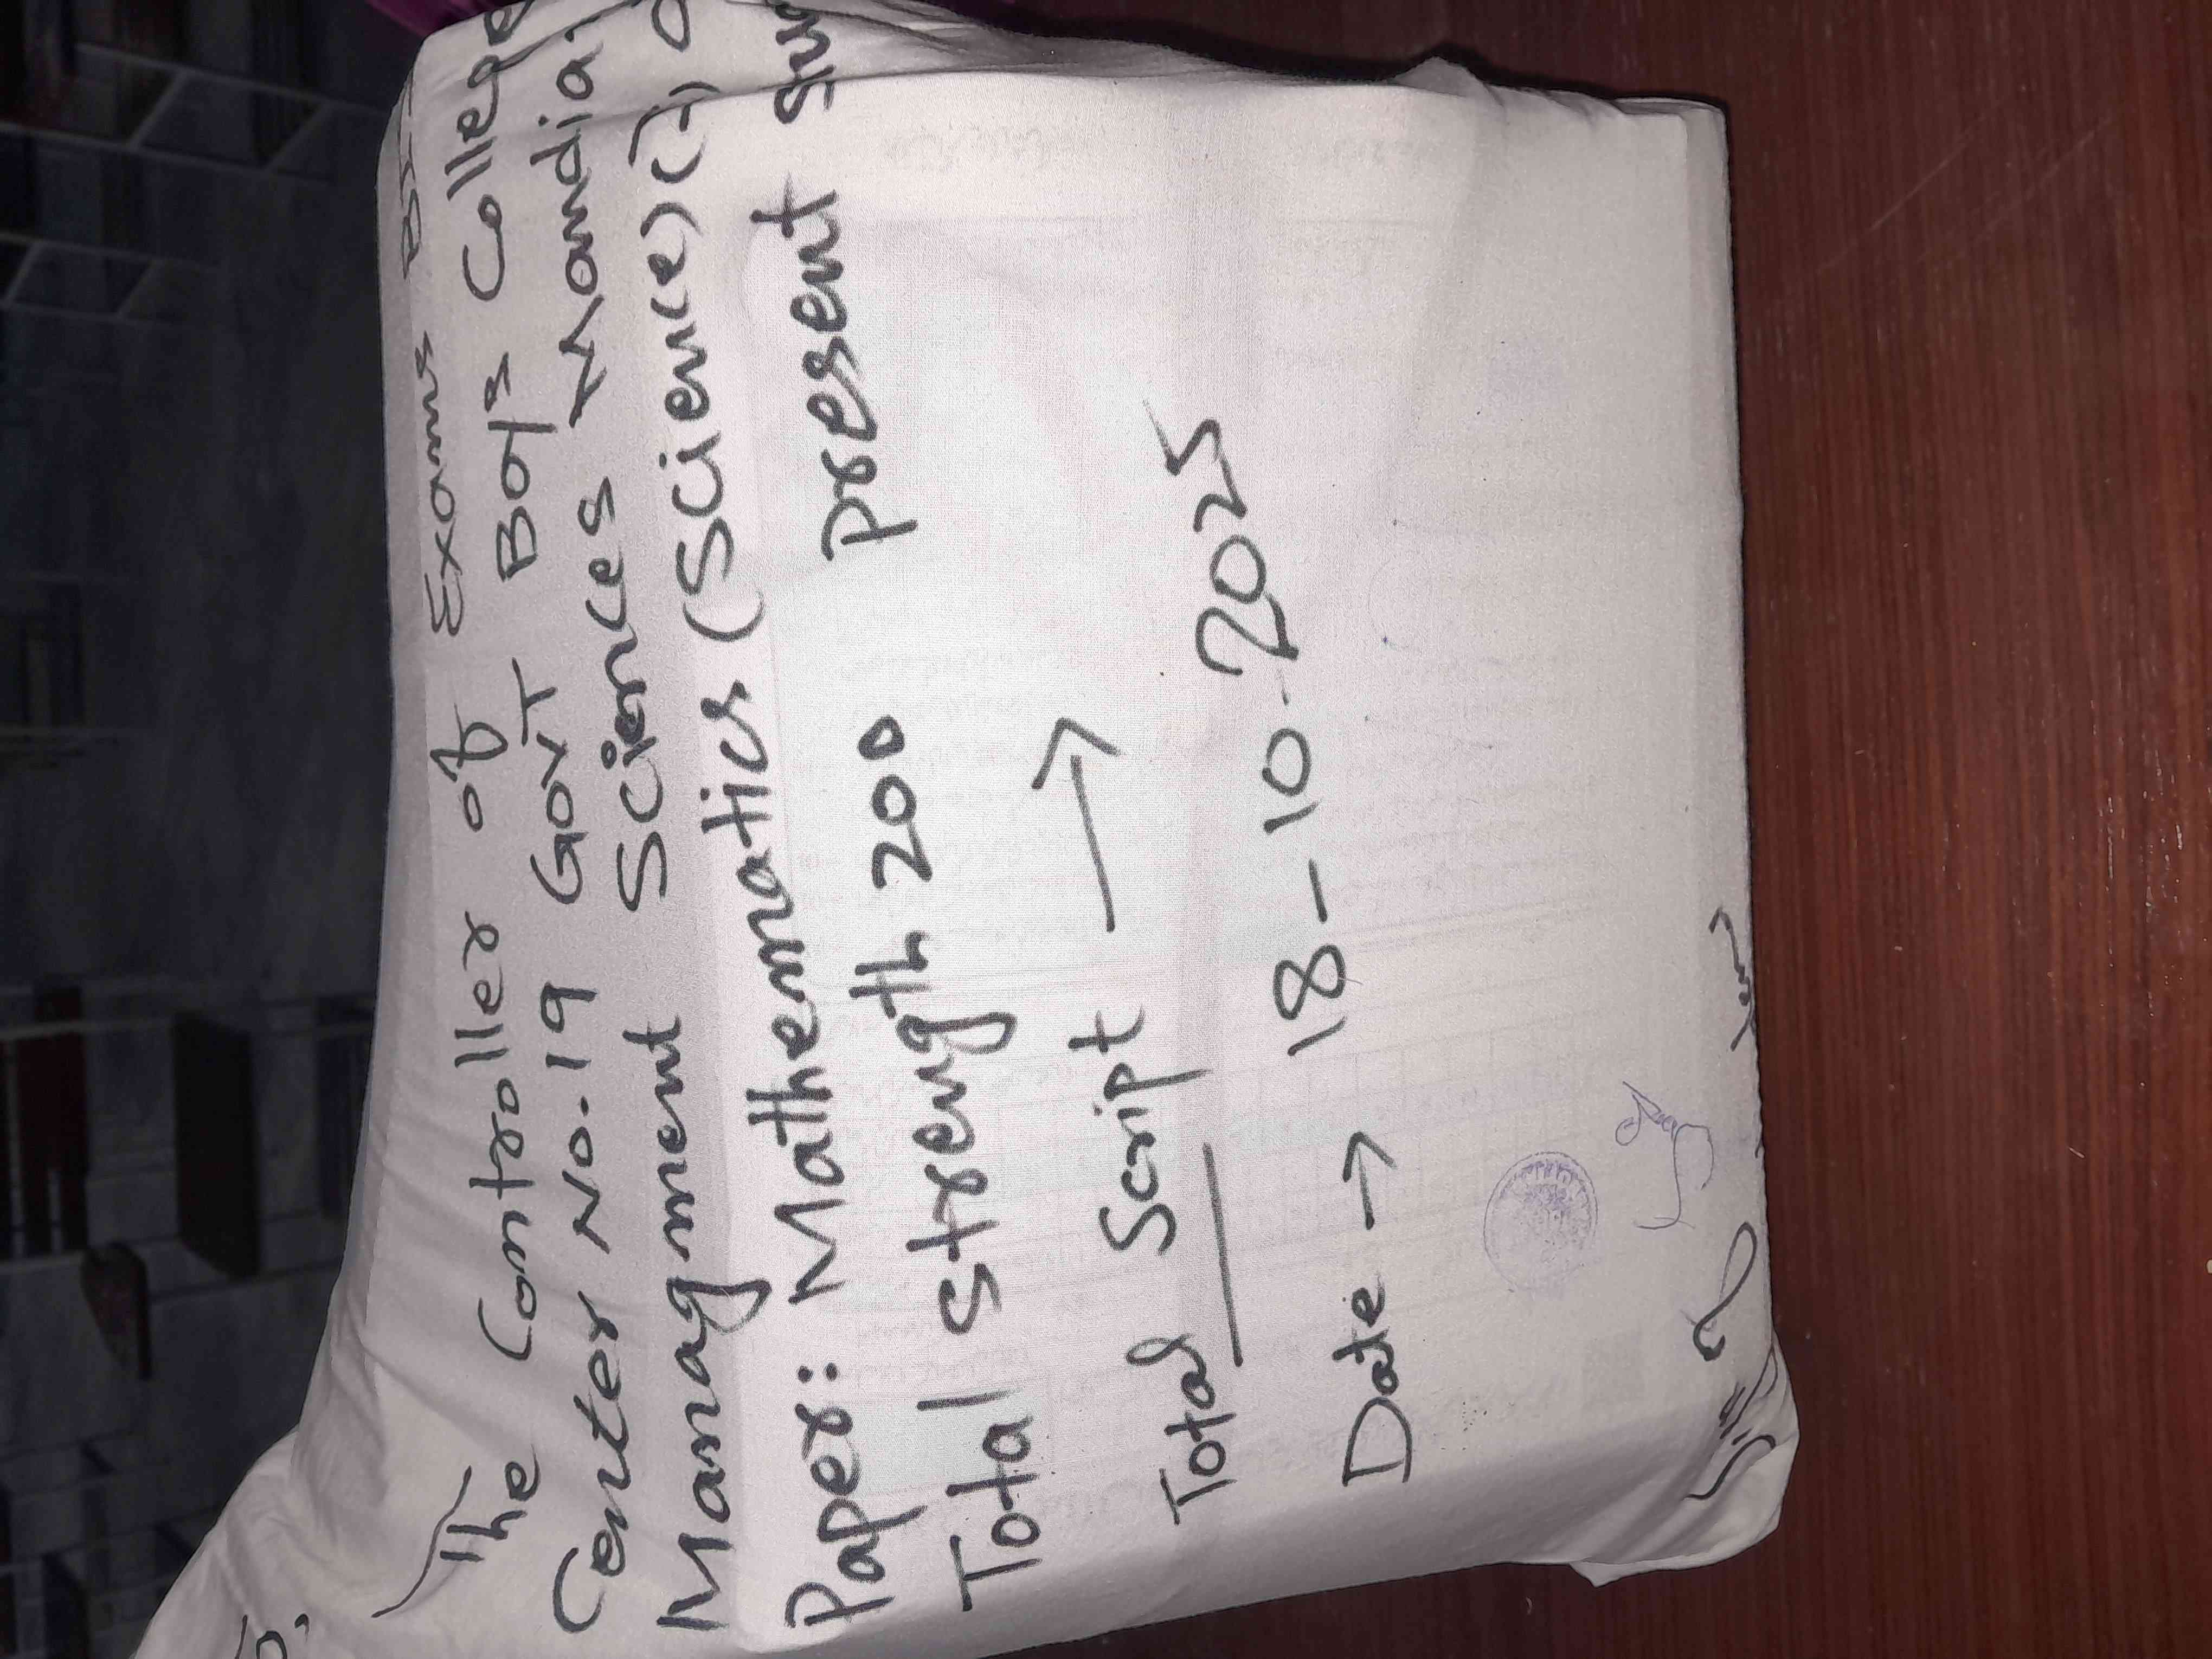 The Controller of Exams
Center No. 19 GOVT Boys College
Managment Sciences
Paper: Mathematics (Science)
Total strength 200 present
Total Script →
Date → 18-10-2025